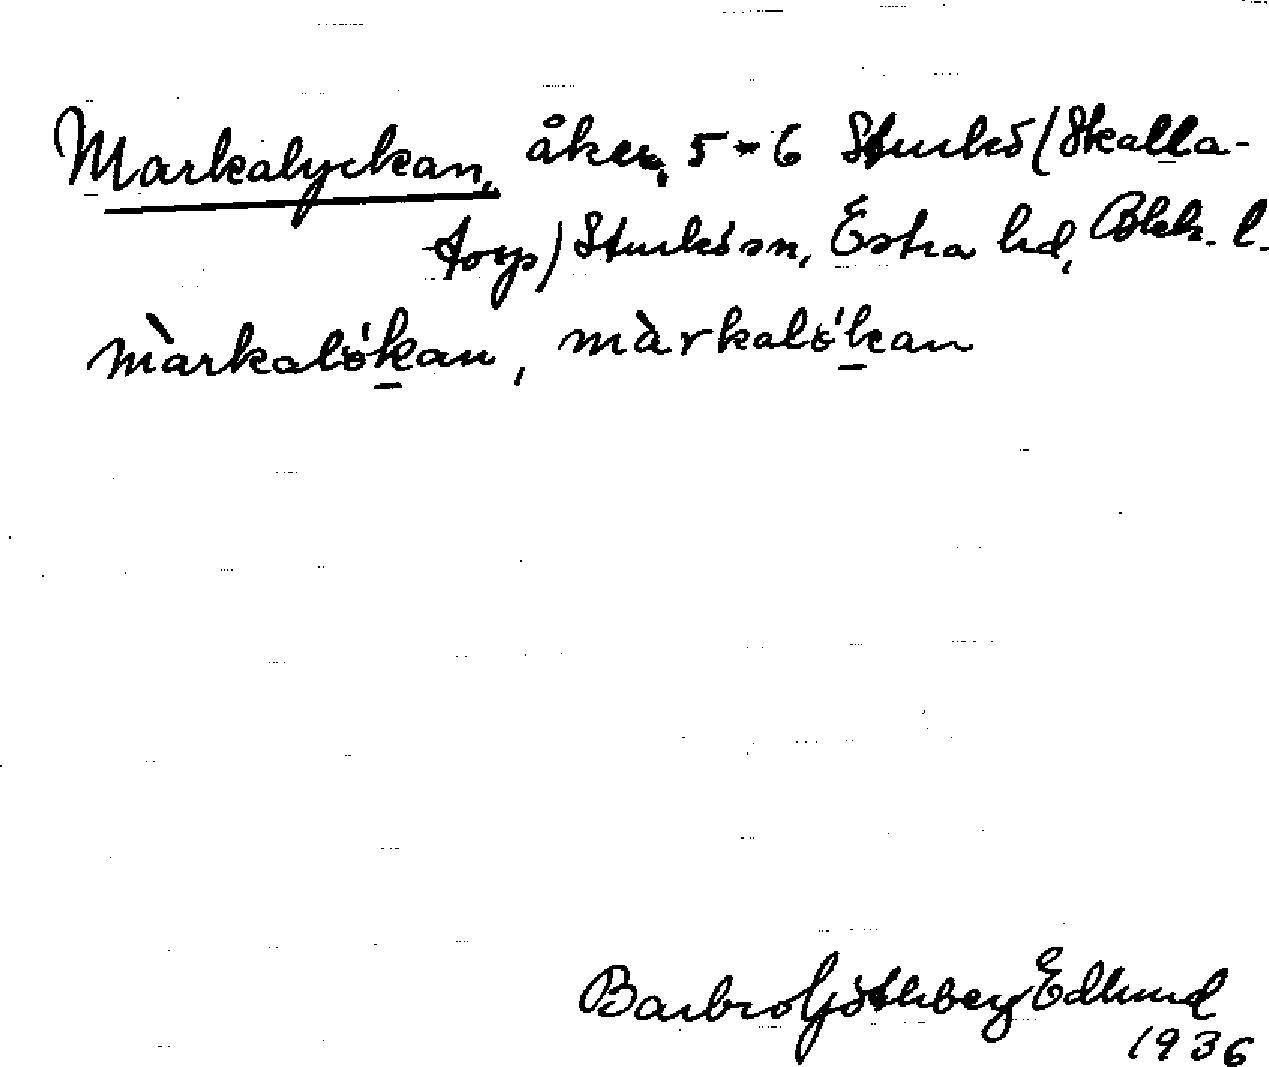 Markalyckan, åker, 5-6 Sturkö (Skalla-
torp) Sturkö sn, Östra hd, Blek. l.
màrkalö́kan, màrkalö́kan
Barbro Göthberg Edlund
1936